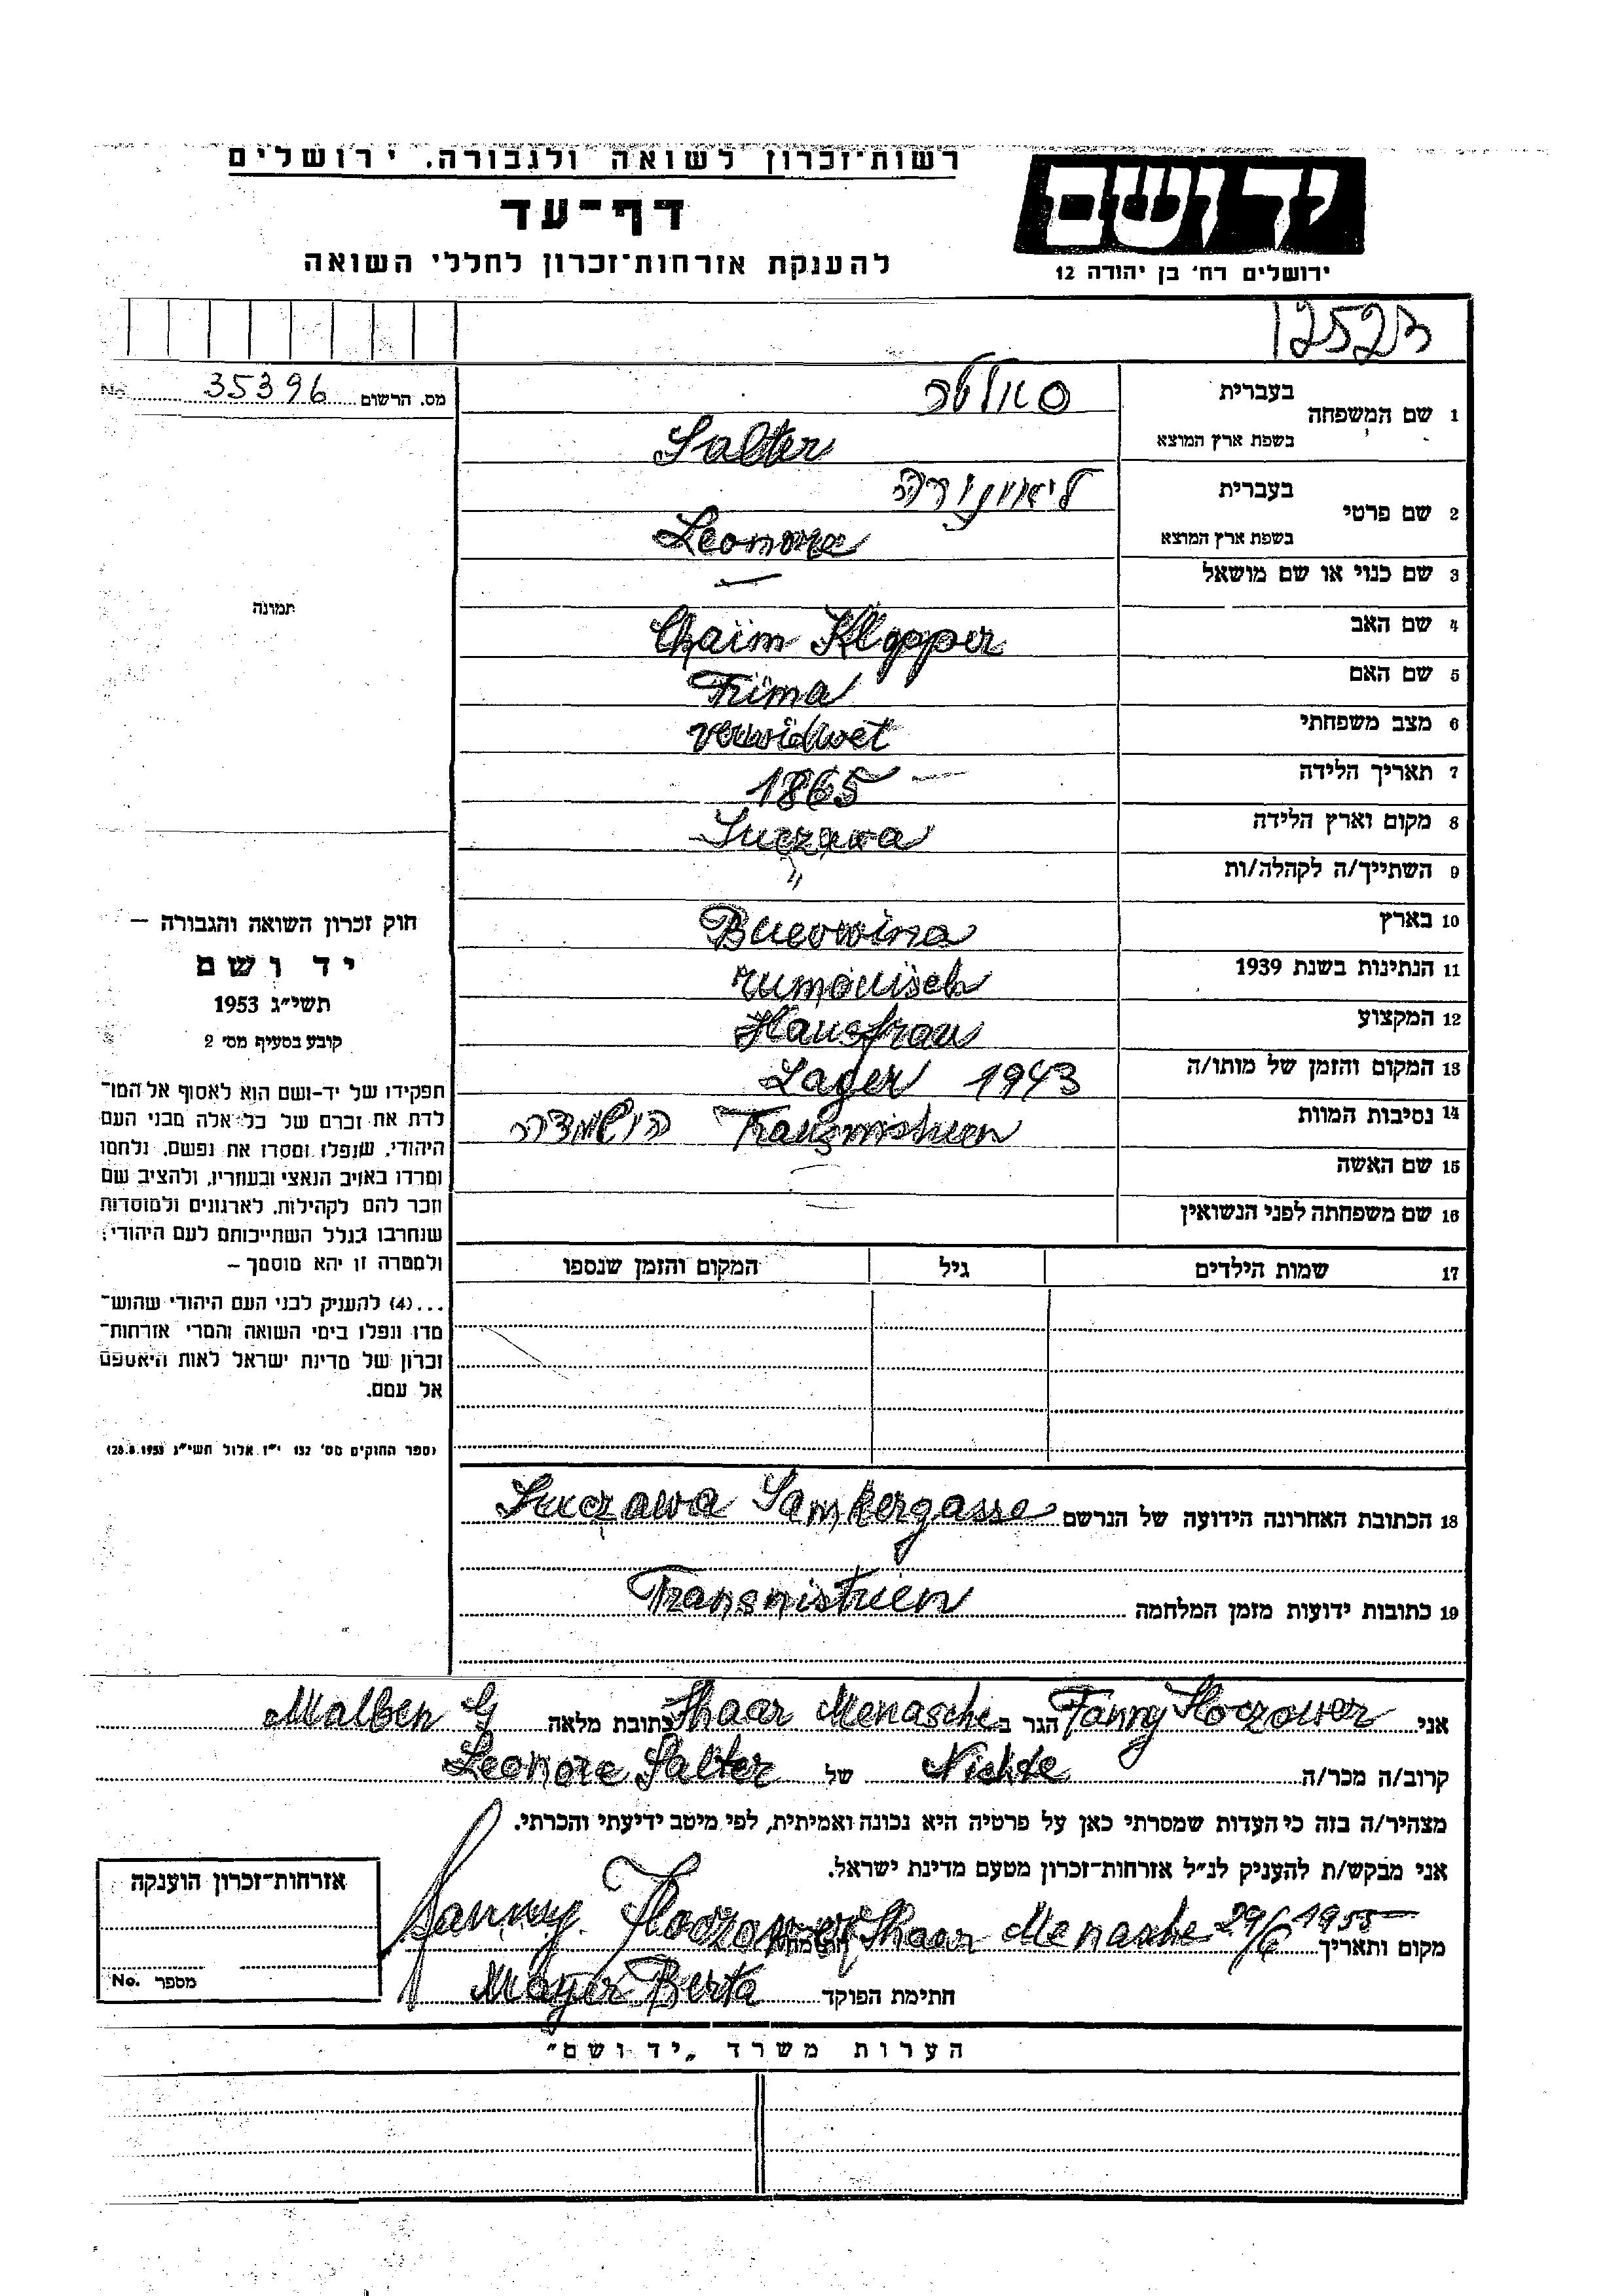 רשות־זכרון לשואה ולגבורה. ירושלים
דף־עד
להענקת אזרחות־זכרון לחללי השואה
יד ושם
ירושלים רח' בן יהודה 12
12523
מס. הרשום 35396 No.
1 שם המשפחה
בעברית סאלטר
בשפת ארץ המוצא Salter
2 שם פרטי
בעברית ליאונורה
בשפת ארץ המוצא Leonore
3 שם כנוי או שם מושאל —
4 שם האב Chaim Klopper
5 שם האם Frima
6 מצב משפחתי verwidwet
7 תאריך הלידה 1865 —
8 מקום וארץ הלידה Suczawa
9 השתייך/ה לקהלה/ות "
10 בארץ Bucowina
11 הנתינות בשנת 1939 rumänisch
12 המקצוע Hausfrau
13 המקום והזמן של מותו/ה Lager 1943
14 נסיבות המוות Transnistrien הושמדה
15 שם האשה —
16 שם משפחתה לפני הנשואין —
17 שמות הילדים גיל המקום והזמן שנספו
תמונה
חוק זכרון השואה והגבורה —
יד ושם
תשי"ג 1953
קובע בסעיף מס' 2
תפקידו של יד-ושם הוא לאסוף אל המו־
לדת את זכרם של כל אלה מבני העם
היהודי, שנפלו ומסרו את נפשם, נלחמו
ומרדו באויב הנאצי ובעוזריו, ולהציב שם
וזכר להם לקהילות, לארגונים ולמוסדות
שנחרבו בגלל השתייכותם לעם היהודי;
ולמטרה זו יהא מוסמך —
...(4) להעניק לבני העם היהודי שהוש־
מדו ונפלו בימי השואה והמרי אזרחות־
זכרון של מדינת ישראל לאות היאספם
אל עמם.
(ספר החוקים מס' 132 י"ז אלול תשי"ג 28.8.1953)
18 הכתובת האחרונה הידועה של הנרשם Suczawa
19 כתובות ידועות מזמן המלחמה Transnistrien
אני Fanny Hoczower הגר ב Shaar Menasche כתובת מלאה Malben G
קרוב/ה מכר/ה Nichte של Leonore Salter
מצהיר/ה בזה כי העדות שמסרתי כאן על פרטיה היא נכונה ואמיתית, לפי מיטב ידיעתי והכרתי.
אני מבקש/ת להעניק לנ"ל אזרחות־זכרון מטעם מדינת ישראל.
מקום ותאריך Shaar Menashe 29/6 1955 — חתימה Fanny Hoczower
חתימת הפוקד Mayer Berta
אזרחות־זכרון הוענקה
מספר No.
הערות משרד „יד ושם"